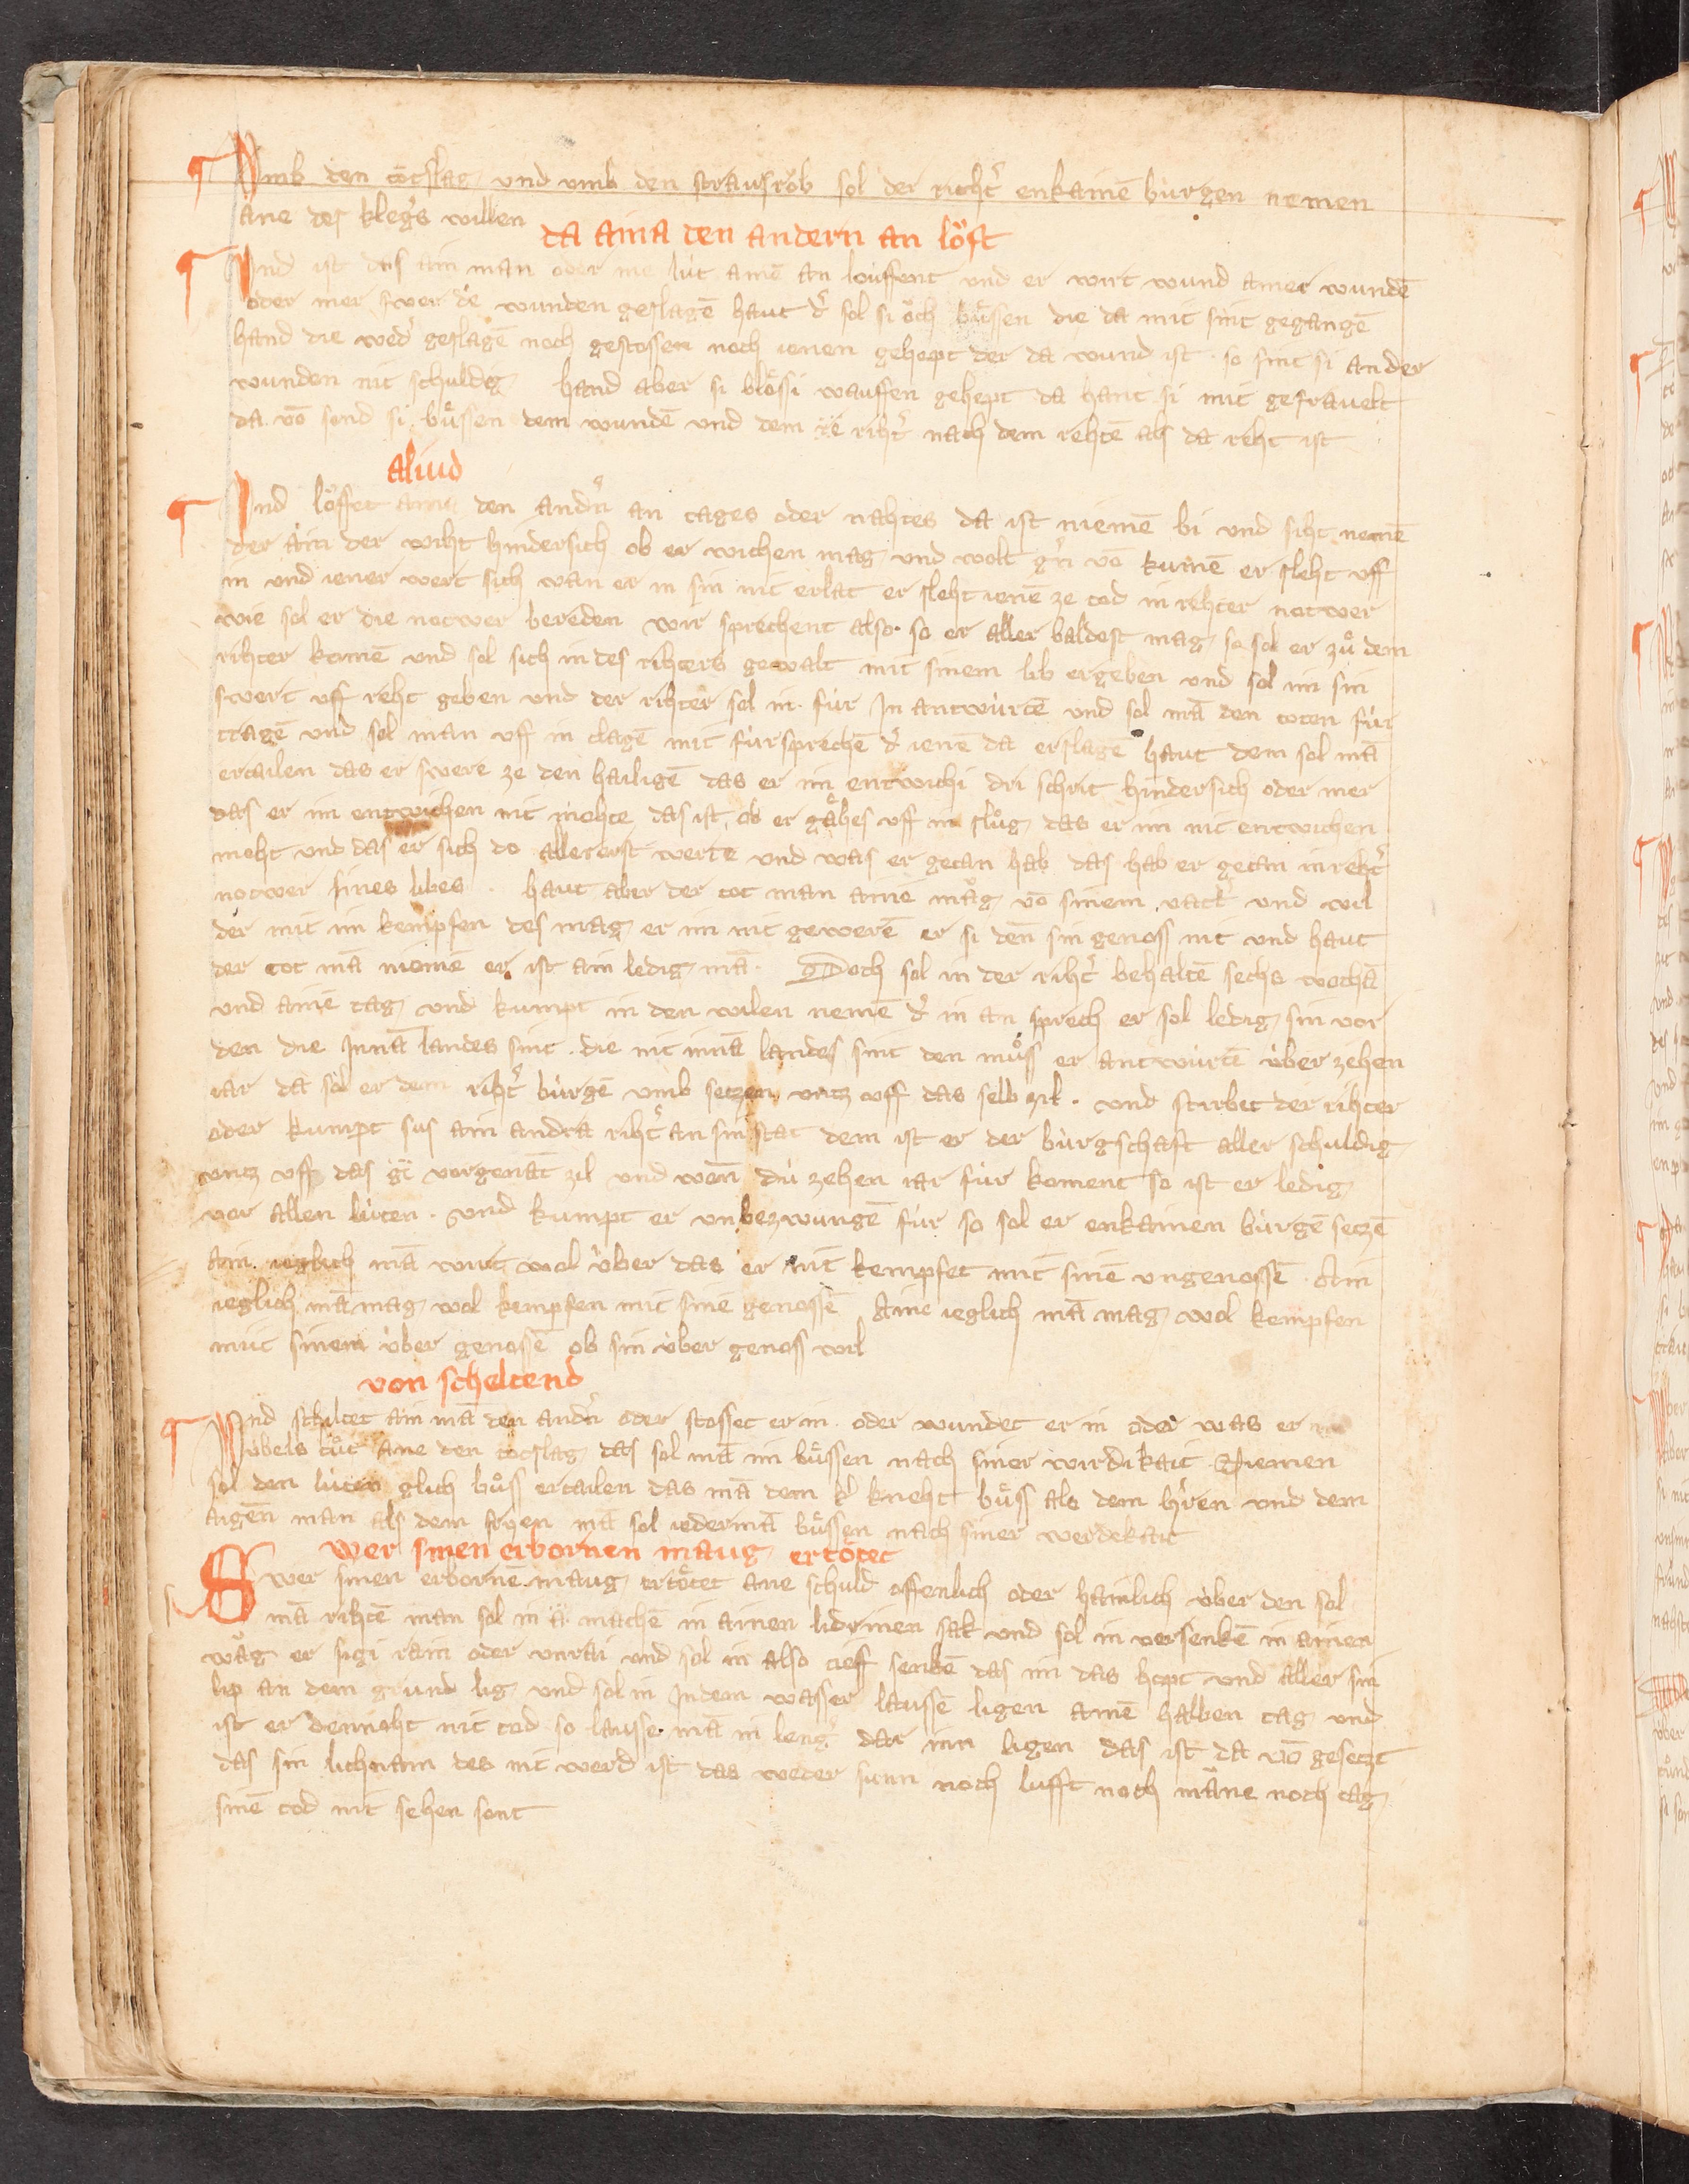 ¶ Vmb den totslag und vmb den strausrob sol der richt͛ enkainē bùrgen nemen
ane des kleg͛s willen
da aina den andern an lo᷑ft
¶ Vnd ist das ain man oder me lùt ainē an louffent und er wirt wund ainer wundē
oder mer swer de wunden geslagē haut d͛ sol si och bùssen die da mit sint gegangē
hand die wed͛ geslagē noch gestossen noch ienen gehept der da wund ist · so sint si an der
wunden nit schuldig hand aber si blossi wauffen gehept da hant si mit gefrauelt
da vō sond si bùssen dem wundē und dem riht͛ nach dem rehtē als da reht ist
aliud
¶ Vnd lo᷑ffet aine den and͛n an tages oder nahtes da ist niemē bi und siht nemē
der ain der wiht hindersich ob er wichen mag und wolt g͛n vō kumē er sleht vff
in und iener wert sich wan er in sin nit erlat er sleht ienē ze tod in rehter notwer
wie sol er die notwer bereden wir sprechent also · so er aller baldest mag so sol er zů dem
rihter komē und sol sich in des rihters gewalt mit sinem lib ergeben und sol im sin
swert vff reht geben und der rihter sol in fùr In antwùrtē und sol mā den toten fùr
tragē und sol man vff in clagē mit fùrsprechē d͛ ienē da erslagē haut dem sol mā
ertailen das er swere ze den hailigē das er im entwichi dri schrit hindersich oder mer
das er im entwichen nit mehte das ist ob er gåhes vff in slůg das er im nit entwichen
meht und das er sich do allererst werte und was er getan hab das hab er getan in reht͛
notwer sines libes · haut aber der tot man ainē måg vō sinem vatt͛ und wil
der mit im kempfen des mag er im nit gewerē er si denn sin genoss nit und haut
der tot mā niemē er ist ain ledig mā · Doch sol in der riht͛ behaltē sechs wochā
und ainē tag und kumpt in den wilen nemē d͛ in an sprech er sol ledig sin vor
den die Innā landes sint · die nit innā landes sint den můss er antwùrtē ùber zehen
iar da sol er dem riht͛ bùrgē vmb setzen vntz vff das selb zil · und stirbet der rihter
oder kumpt sus ain andra riht͛ an sin stat dem ist er der bùrgschaft aller schuldig
vntz vff das vorgenāt zil und wenn dù zehen iar fùr koment so ist er ledig
vor allen lùten · und kumpt er vnbezwungē fùr so sol er enkainen bùrgē setzē
Ain ieglich mā wirt wol ùber das er nit kempfet mit sinē vngenossē · Ain
ieglich mā mag wol kempfen mit sinē genossē Aine ieglich mā mag wol kempfen
mit sinem ùber genossē ob sin ùber genoss wil
von scheltend
¶ Vnd schiltet ain mā den and͛n oder stosset er in oder wundet er in oder was er
ùbels tůt ane den totslag das sol mā im bùssen nach siner wirdikait Niemen
sol den lùten glich bůss ertailen das mā dem kneht bùss als dem h͛ren und dem
aigen man als dem fryen mā sol iedermā bùssen nach siner werdekait
wer sinen erbornen maug ertötet
Swer sinen erbornē maug ertötet ane schuld offenlich oder hainlich ùber den sol
mā rihtē man sol in machē in ainen lidrinen sak und sol in versenkē in ainen
wåg er sigi rain oder vnrai und sol in also tieff senkē das im das hopt und aller sin
lip an dem grund lig und sol in Indem wasser laussē ligen ainē halben tag und
ist er dennoht nit tod so lausse mā in leng͛ dar inn ligen das ist da vō gesetzt
das sin lichnam des nit werd ist das weder sunn noch lufft noch måne noch tag
sinē tod nit sehen sont